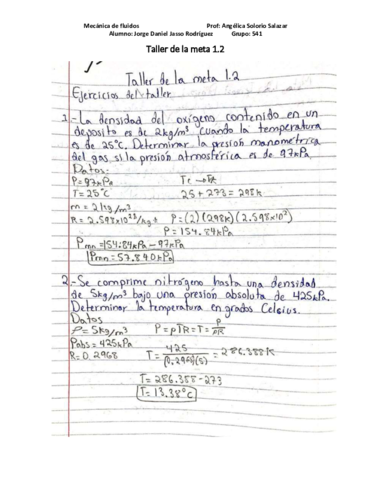 Mecánica de fluidos Prof: Angélica Solorio Salazar
Alumno: Jorge Daniel Jasso Rodríguez Grupo: 541
Taller de la meta 1.2
Taller de la meta 1.2
Ejercicios del taller
1.- La densidad del oxígeno contenido en un
deposito es de 2kg/m³ cuando la temperatura
es de 25°C. Determinar la presión manométrica
del gas si la presión atmosférica es de 97kPa
Datos:
P=97kPa
T=25°C 25+273=298k
m=2kg/m³
P=(2)(298k)(2.598x10²)
P=154.84kPa
Pmn=154.84kPa-97kPa
Pmn=57.840kPa
2.- Se comprime nitrógeno hasta una densidad
de 5kg/m³ bajo una presión absoluta de 425kPa.
Determinar la temperatura en grados Celsius.
Datos
ρ=5kg/m³ P=ρTR=T=P/ρR
Pabs=425kPa
R=0.2968 T=425/(0.2968)(5)=286.388K
T=286.388-273
T=13.38°C